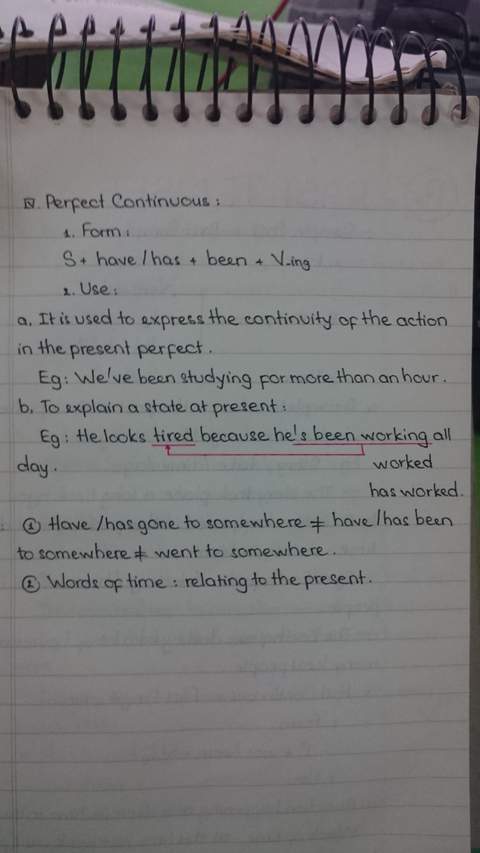 IV. Perfect Continuous:
1. Form:
S + have/has + been + V-ing
2. Use:
a. It is used to express the continuity of the action
in the present perfect.
Eg: We've been studying for more than an hour.
b. To explain a state at present:
Eg: He looks tired because he's been working all
day.
worked
has worked.
① Have/has gone to somewhere ≠ have/has been
to somewhere ≠ went to somewhere.
② Words of time: relating to the present.